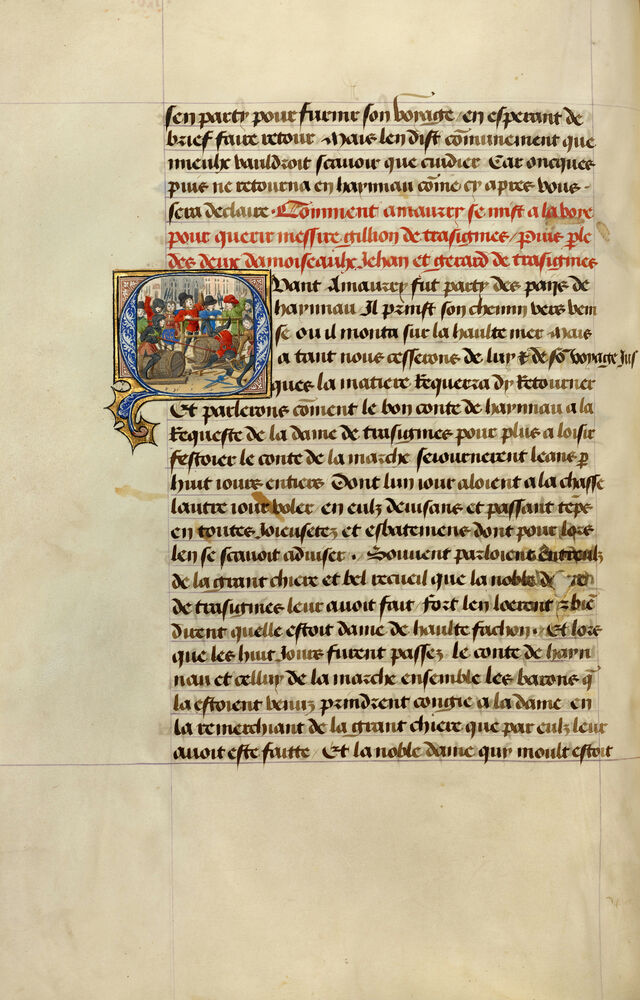 sen party pour furnir son voyage / en esperant de
brief faire retour / Mais len dist cōmunement que
mieulx vauldroit scauoir que cuidier Car oncques
puis ne retourna en haynnau cōme cy apres vous
sera declaire . Comment amaury se mist a la voye
pour querir messire gillion de trasignies / Puis ple
des deux damoiseaulx Jehan et gerard de trasignies
Quant Amaury fut party des pays de
haynnau Il prinst son chemin vers ven
se ou il monta sur la haulte mer Mais
a tant nous cesserons de luy & de sō voyage Jus
ques la matiere Requerra dy Retourner
Et parlerons cōment le bon conte de haynnau a la
Requeste de la dame de trasignies pour plus a loisir
festoier le conte de la marche seiournerent leans p
huit iours entiers Dont lun iour aloient a la chasse
lautre iour voler / en eulz deuisans et passant tēps
en toutes Joieusetez et esbatemens dont pour lors
len se scauoit aduiser . Souuent parloient entreulz
de la grant chiere et bel recueil que la noble
de trasignies leur auoit fait / fort len loerent & biē
dirent quelle estoit dame de haulte fachon . Et lors
que les huit Jours furent passez le conte de hayn
nau et celluy de la marche ensemble les barons q̄
la estoient venuz prindrent congie a la dame en
la remerchiant de la grant chiere que par eulz leur
auoit este faitte / Et la noble dame quy moult estoit